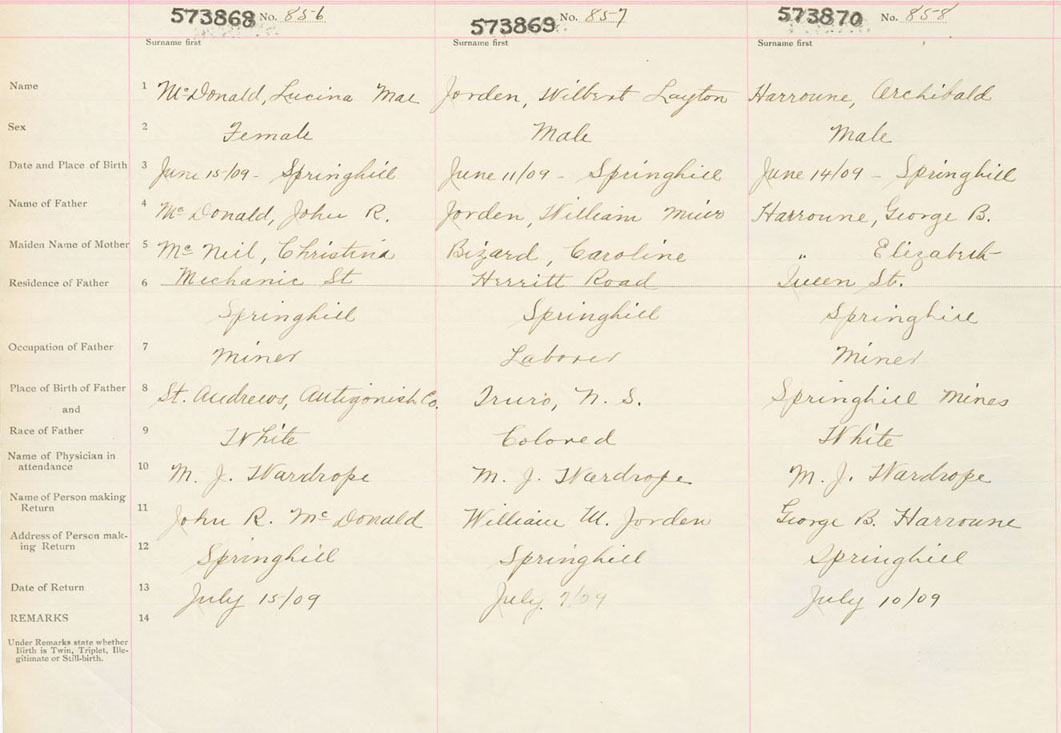 573868 No. 856 573869 No. 857 573870 No. 858
Surname first Surname first Surname first
Name 1 McDonald, Lucina Mae Jorden, Wilbert Layton Harroune, Archibald
Sex 2 Female Male Male
Date and Place of Birth 3 June 15/09 - Springhill June 11/09 - Springhill June 14/09 - Springhill
Name of Father 4 McDonald, John R. Jorden, William Harroune, George B.
Maiden Name of Mother 5 McNeil, Christina Bizard, Caroline " Elizabeth
Residence of Father 6 Mechanic St Herritt Road Queen St.
Springhill Springhill Springhill
Occupation of Father 7 Miner Laborer Miner
Place of Birth of Father 8 St. Andrews, Antigonish Co. Truro, N. S. Springhill Mines
and
Race of Father 9 White Colored White
Name of Physician in
attendance 10 M. J. Wardrope M. J. Wardrope M. J. Wardrope
Name of Person making
Return 11 John R. McDonald William M. Jorden George B. Harroune
Address of Person mak-
ing Return 12 Springhill Springhill Springhill
Date of Return 13 July 15/09 July 7/09 July 10/09
REMARKS 14
Under Remarks state whether
Birth is Twin, Triplet, Ille-
gitimate or Still-birth.